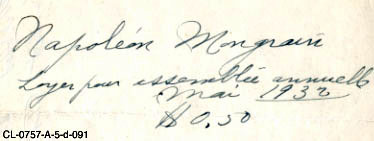 Napoléon Mongrain
Loyer pour assemblée annuelle
Mai 1932
$ 0.50
CL-0757-A-5-d-091